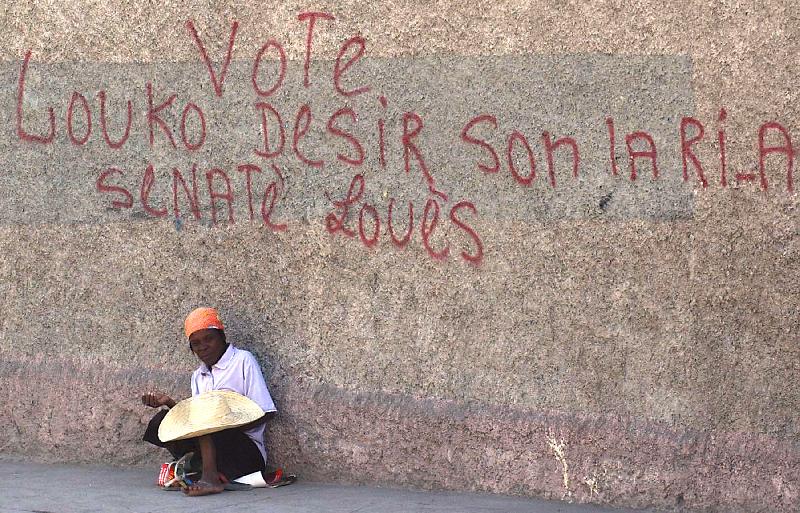 VOTe
LOUKO DesiR son laRi_A
seNATè Loués